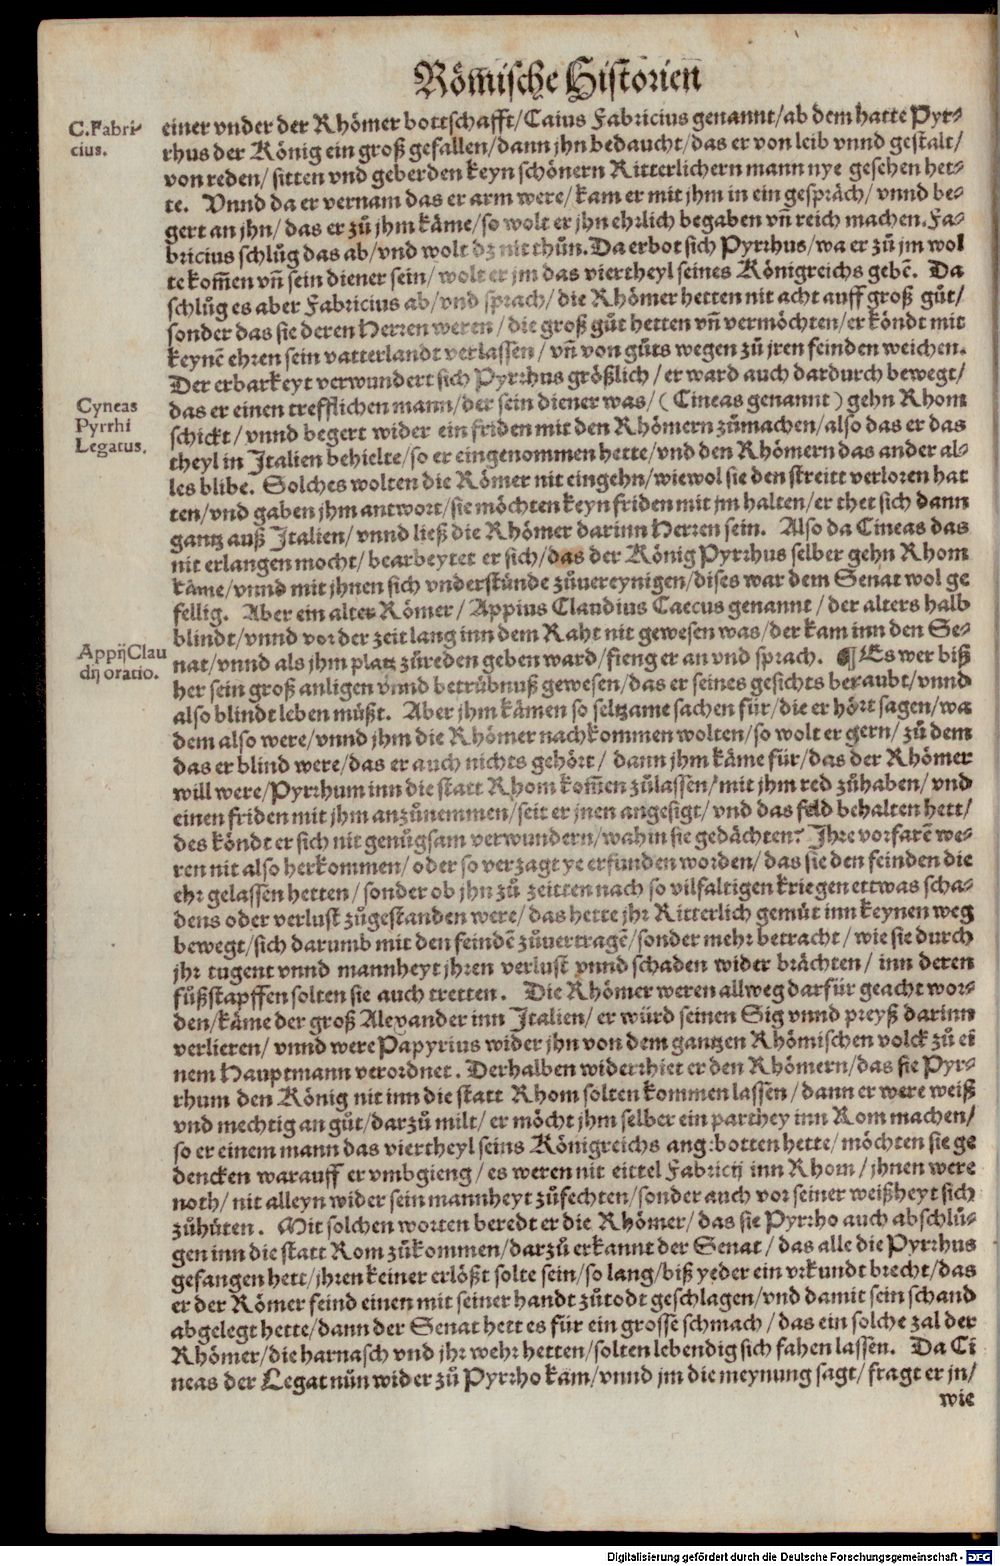 Römische Historienn
C. Fabri-
cius.
einer vnder der Rhömer bottschafft/ Caius Fabricius genannt/ ab dem hatte Pyr-
rhus der König ein groß gefallen/ dann jhn bedaucht/ das er von leib vnnd gestalt/
von reden/ sitten vnd geberden keyn schönern Ritterlichern mann nye gesehen het-
te. Vnnd da er vernam das er arm were/ kam er mit jhm in ein gespräch/ vnnd be-
gert an jhn/ das er zů jhm käme/ so wolt er jhn ehrlich begaben vñ reich machen. Fa-
bricius schlůg das ab/ vnd wolt dz nit thůn. Da erbot sich Pyrrhus/ wa er zů jm wol
te kom̃en vñ sein diener sein/ wolt er jm das viertheyl seines Königreichs gebẽ. Da
schlůg es aber Fabricius ab/ vnd sprach/ die Rhömer hetten nit acht auff groß gůt/
sonder das sie deren Herren weren/ die groß gůt hetten vñ vermöchten/ er köndt mit
keynẽ ehren sein vatterlandt verlassen/ vñ von gůts wegen zů jren feinden weichen.
Der erbarkeyt verwundert sich Pyrrhus größlich/ er ward auch dardurch bewegt/
Cyneas
Pyrrhi
Legatus.
das er einen trefflichen mann/ der sein diener was/ (Cineas genannt) gehn Rhom
schickt/ vnnd begert wider ein friden mit den Rhömern zůmachen/ also das er das
theyl in Italien behielte/ so er eingenommen hette/ vnd den Rhömern das ander al-
les blibe. Solches wolten die Römer nit eingehn/ wiewol sie den streitt verloren hat
ten/ vnd gaben jhm antwort/ sie möchten keyn friden mit jm halten/ er thet sich dann
gantz auß Italien/ vnnd ließ die Rhömer darinn Herren sein. Also da Cineas das
nit erlangen mocht/ bearbeytet er sich/ das der König Pyrrhus selber gehn Rhom
käme/ vnnd mit jhnen sich vnderstünde zůuereynigen/ dises war dem Senat wol ge
fellig. Aber ein alter Römer/ Appius Claudius Caecus genannt/ der alters halb
blindt/ vnnd vor der zeit lang inn dem Raht nit gewesen was/ der kam inn den Se-
Appij Clau
dij oratio.
nat/ vnnd als jhm platz zůreden geben ward/ fieng er an vnd sprach. ¶ Es wer biß
her sein groß anligen vnnd betrübnuß gewesen/ das er seines gesichts beraubt/ vnnd
also blindt leben müßt. Aber jhm kämen so seltzame sachen für/ die er hört sagen/ wa
dem also were/ vnnd jhm die Rhömer nachkommen wolten/ so wolt er gern/ zů dem
das er blind were/ das er auch nichts gehört/ dann jhm käme für/ das der Rhömer
will were/ Pyrrhum inn die statt Rhom kom̃en zůlassen/ mit jhm red zůhaben/ vnd
einen friden mit jhm anzůnemmen/ seit er jnen angesigt/ vnd das feld behalten hett/
des köndt er sich nit genůgsam verwundern/ wahin sie gedächten? Ihre vorfarẽ we-
ren nit also herkommen/ oder so verzagt ye erfunden worden/ das sie den feinden die
ehr gelassen hetten/ sonder ob jhn zů zeitten nach so vilfaltigen kriegen ettwas scha-
dens oder verlust zůgestanden were/ das hette jhr Ritterlich gemüt inn keynen weg
bewegt/ sich darumb mit den feindẽ zůuertragẽ/ sonder mehr betracht/ wie sie durch
jhr tugent vnnd mannheyt jhren verlust vnnd schaden wider brächten/ inn deren
fůßstapffen solten sie auch tretten. Die Rhömer weren allweg darfür geacht wor-
den/ käme der groß Alexander inn Italien/ er würd seinen Sig vnnd preyß darinn
verlieren/ vnnd were Papyrius wider jhn von dem gantzen Rhömischen volck zů ei
nem Hauptmann verordnet. Derhalben widerrhiet er den Rhömern/ das sie Pyr-
rhum den König nit inn die statt Rhom solten kommen lassen/ dann er were weiß
vnd mechtig an gůt/ darzů milt/ er möcht jhm selber ein parthey inn Rom machen/
so er einem mann das viertheyl seins Königreichs angebotten hette/ möchten sie ge
dencken warauff er vmbgieng/ es weren nit eittel Fabricij inn Rhom/ jhnen were
noth/ nit alleyn wider sein mannheyt zůfechten/ sonder auch vor seiner weißheyt sich
zůhüten. Mit solchen worten beredt er die Rhömer/ das sie Pyrrho auch abschlů-
gen inn die statt Rom zůkommen/ darzů erkannt der Senat/ das alle die Pyrrhus
gefangen hett/ jhren keiner erlößt solte sein/ so lang/ biß yeder ein vrkundt brecht/ das
er der Römer feind einen mit seiner handt zůtodt geschlagen/ vnd damit sein schand
abgelegt hette/ dann der Senat hett es für ein grosse schmach/ das ein solche zal der
Rhömer/ die harnasch vnd jhr wehr hetten/ solten lebendig sich fahen lassen. Da Ci
neas der Legat nůn wider zů Pyrrho kam/ vnnd jm die meynung sagt/ fragt er jn/
wie
Digitalisierung gefördert durch die Deutsche Forschungsgemeinschaft - DFG